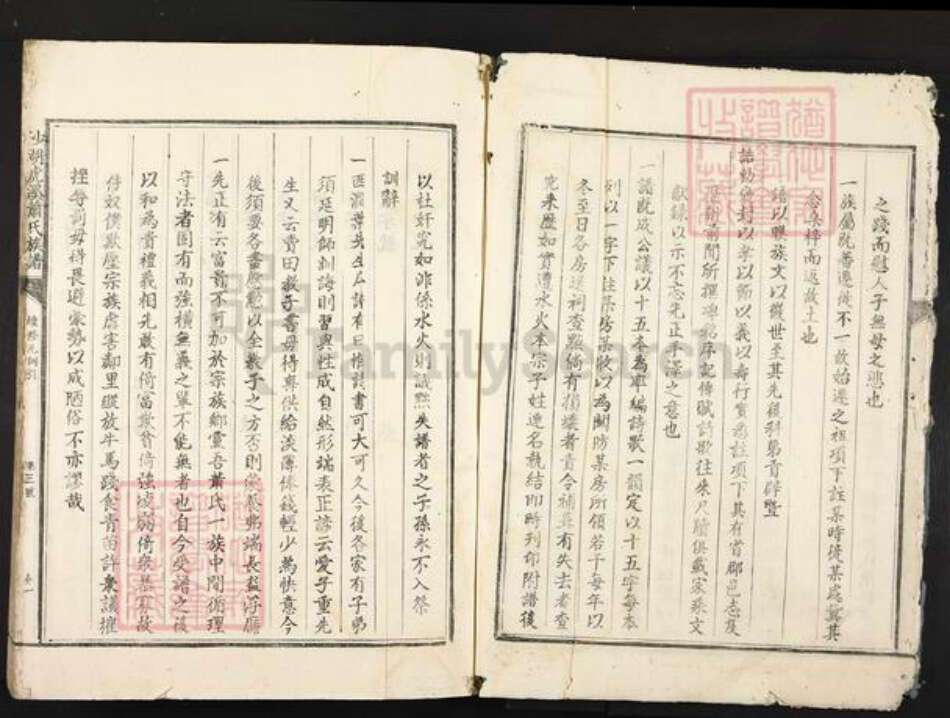 之踐而慰人子無母之悲也
一族屬既蕃遷徙不一故始遷之祖項下註某時從某處冀其
念桑梓而返故土也
譜以聯族文以緯世至其先後科第貢辟暨
誥勅褒封以孝以節以義以壽行實悉註項下其有省郡邑志及
所撰碑銘序記傳賦詩歌往來尺牘俱載家乘文
獻錄以示不忘先正手澤之意也
一譜既成公議以十五本為率編詩歌一韻定以十五字每本
列以一字下註某房某收以為關防某房所領若干每年以
冬至日各房送祠查點倘有損壞者責令補葺有失去者查
究來歷如實遭水火本宗子姓連名執結即時刊印附譜後
以杜奸究如非係水火則議黜失譜者之子孫永不入祭
訓辭
一西澗葉先生詩有曰惟讀書可大可久今後各家有子弟
須延明師訓誨則習與性成自然形端表正諺云愛子重先
生又云賣田教子書毋得與供給淡薄俸錢輕少為快意今
後須要各盡以全教子之方否則
一先正有云富貴不可加於宗族鄉黨吾蕭氏一族中間循理
守法者固有而強橫無義之輩不能無者也自今受譜之後
以和為貴禮義相先敢有倚富欺貧倚強凌弱倚眾暴寡故
侍奴僕欺壓宗族虐害鄰里縱放牛馬踐食青苗許眾議擢
挫每罰毋得畏避豪勢以成陋俗不亦謬哉
氏族譜
卷一
FamilySearch